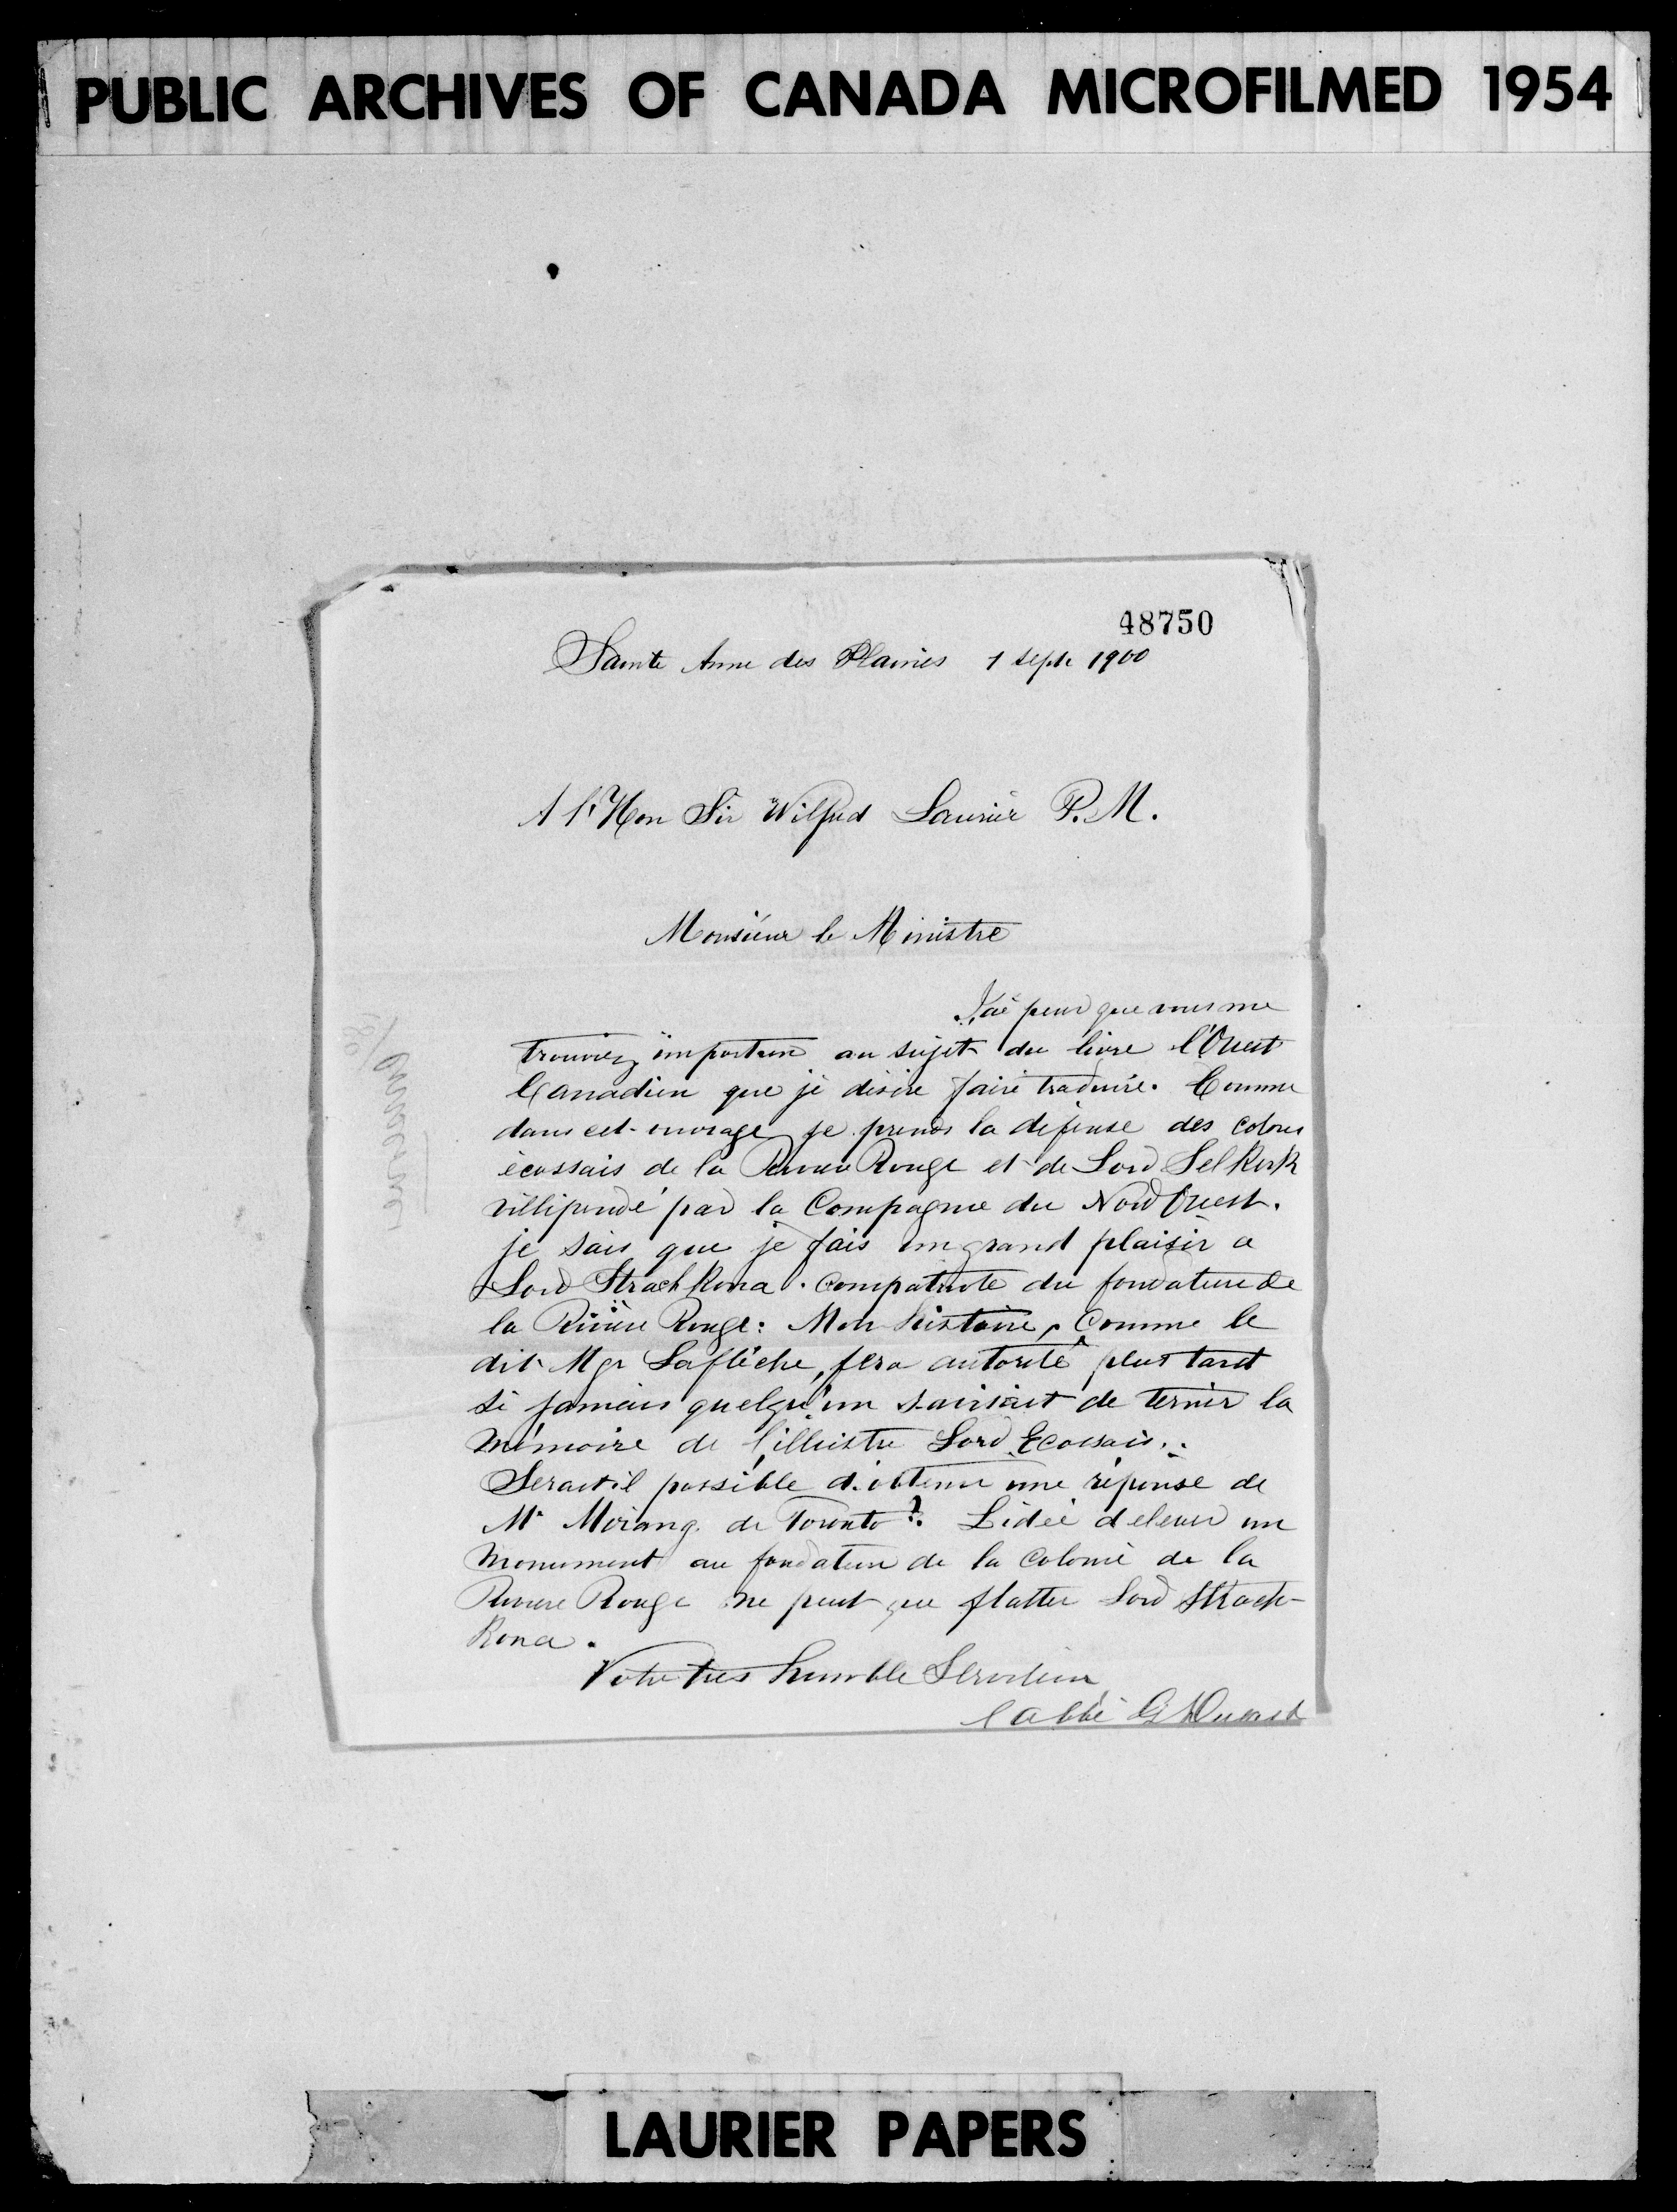 PUBLIC ARCHIVES OF CANADA MICROFILMED 1954
48750
Sainte Anne des Plaines 1 Sept 1900
A l'Hon Sir Wilfrid Laurier P.M.
Monsieur le Ministre
J'ai peur que vous me
trouviez importun au sujet du livre l'Ouest
Canadien que je désire faire traduire. Comme
dans cet ouvrage je prends la défense des colons
écossais de la Rivière Rouge et de Lord Selkirk
villipendé par la Compagnie du Nord Ouest.
je sais que je fais un grand plaisir a
Lord Strachkona. compatriote du fondateur de
la Rivière Rouge: Mon histoire, comme le
dit Mgr Laflèche, fera autorité plus tard
si jamais quelqu'un s'avisait de ternir la
mémoire de l'illustre Lord Ecossais..
Serait-il possible d'obtenir une réponse de
Mr Morang de Toronto? L'idée d'elever un
monument au fondateur de la Colonie de la
Rivière Rouge ne peut que flatter Lord Strach-
kona.
Votre très humble Serviteur
l'abbé G Dugast
LAURIER PAPERS